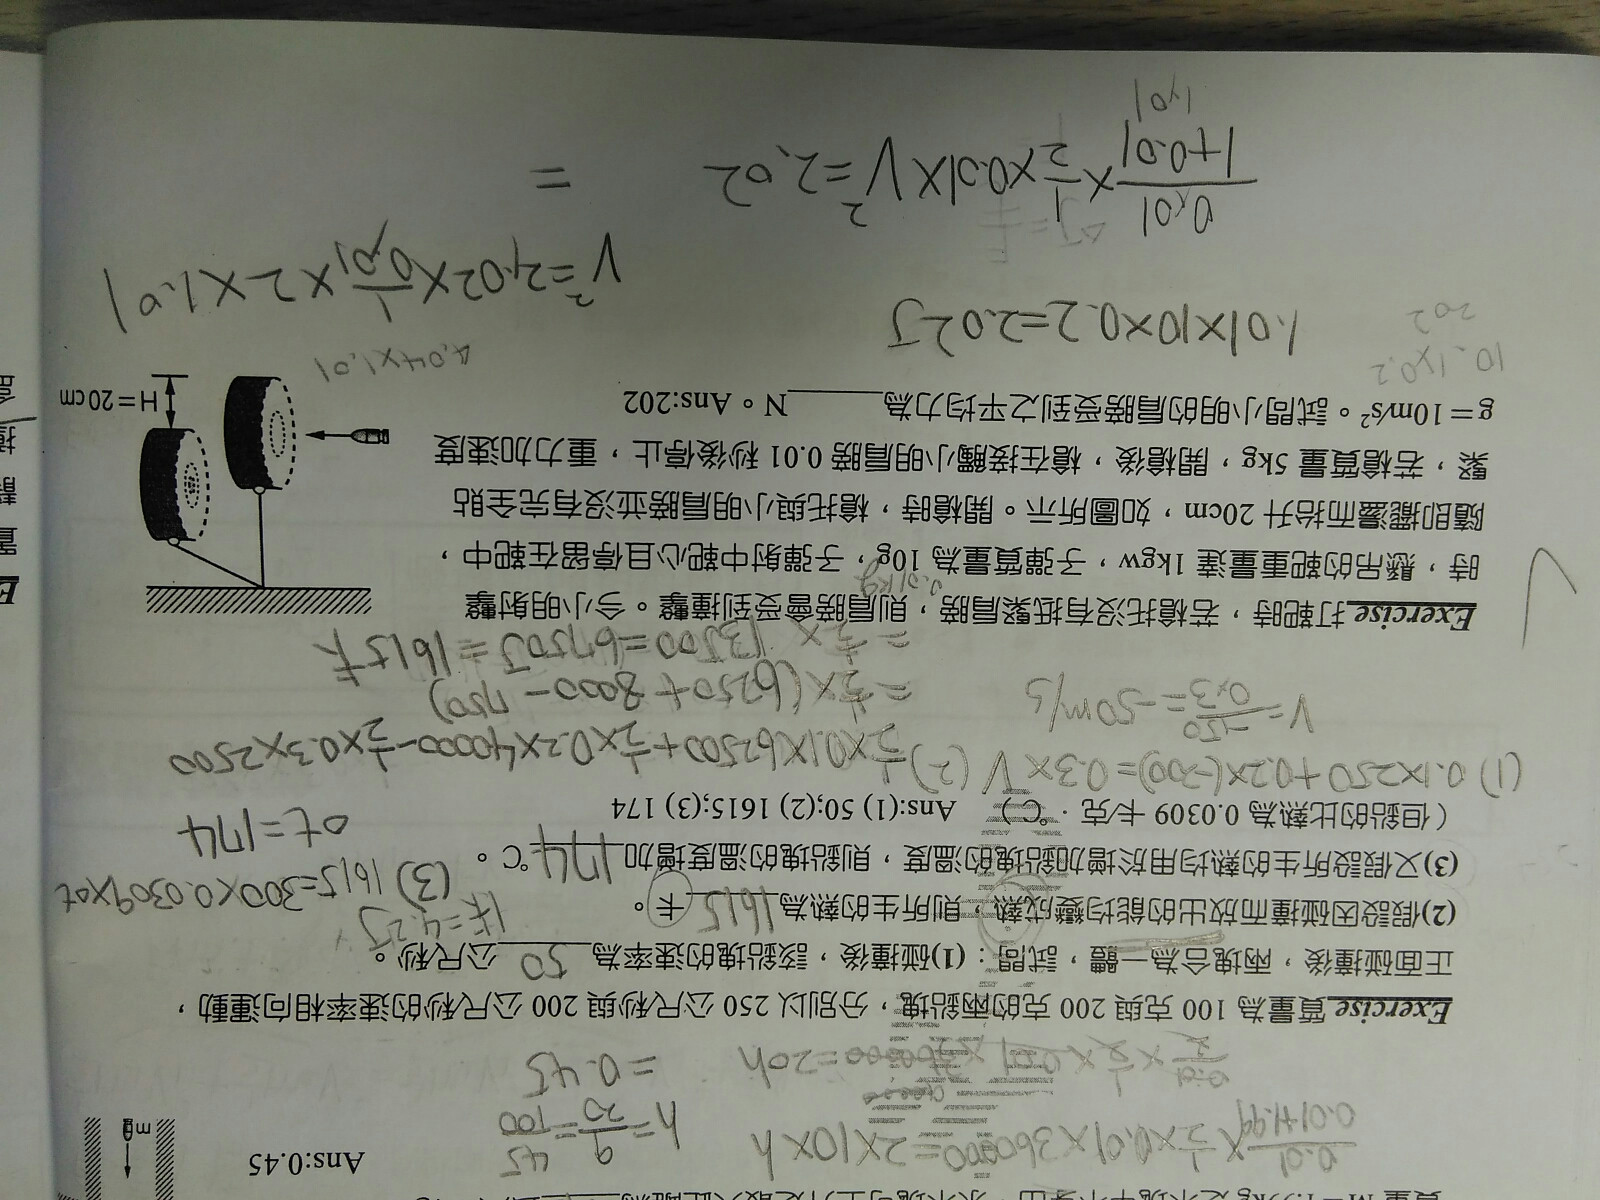 0.01/(0.01+1.99) × 1/2 × 0.01 × 360000 = 2×10×h
h = 9/20 = 45/100
= 0.45
Ans:0.45
m
Exercise 質量為 100 克與 200 克的兩鉛塊，分別以 250 公尺秒與 200 公尺秒的速率相向運動，
正面碰撞後，兩塊合為一體，試問：(1)碰撞後，該鉛塊的速率為 50 公尺秒。
(2)假設因碰撞而放出的能均變成熱，則所生的熱為 1615 卡。
1卡=4.2J
(3)又假設所生的熱均用於增加鉛塊的溫度，則鉛塊的溫度增加 174 °C。
(3) 1615=300×0.0309×Δt
Δt=174
（但鉛的比熱為 0.0309 卡/克．°C） Ans:(1) 50;(2) 1615;(3) 174
(1) 0.1×250+0.2×(-200)=0.3×V
V=-150/0.3=-50m/s
(2) 1/2×0.1×62500+1/2×0.2×40000-1/2×0.3×2500
=1/2×(6250+8000-750)
=1/2×13500=6750J=1615卡
Exercise 打靶時，若槍托沒有抵緊肩膀，則肩膀會受到撞擊。今小明射擊
時，懸吊的靶重量達 1kgw，子彈質量為 10g，子彈射中靶心且停留在靶中，
0.01kg
隨即擺盪而抬升 20cm，如圖所示。開槍時，槍托與小明肩膀並沒有完全貼
緊，若槍質量 5kg，開槍後，槍在接觸小明肩膀 0.01 秒後停止，重力加速度
g＝10m/s²。試問小明的肩膀受到之平均力為 N。Ans:202
H＝20cm
10.1×0.2
202
1.01×10×0.2=2.02J
4.04×1.01
V²=2.02×1/0.01×2×1.01
0.01/(1+0.01)×1/2×0.01×V²=2.02
=
1.01